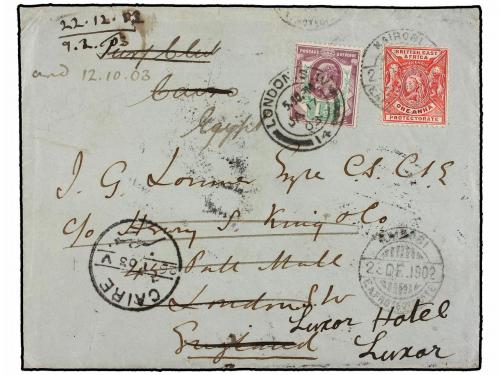 22.12.02
9.2.03
and 12.10.03
Cairo
Egypt
POSTAGE & REVENUE
BRITISH EAST
AFRICA
ONE ANNA
PROTECTORATE
NAIROBI
LONDON
14
J. G. Lorimer Esqre C.S. C.I.E
c/o Henry S. King & Co
Pall Mall
London SW
England
Luxor Hotel
Luxor
CAIRE
V
NAIROBI
2 DE.1902